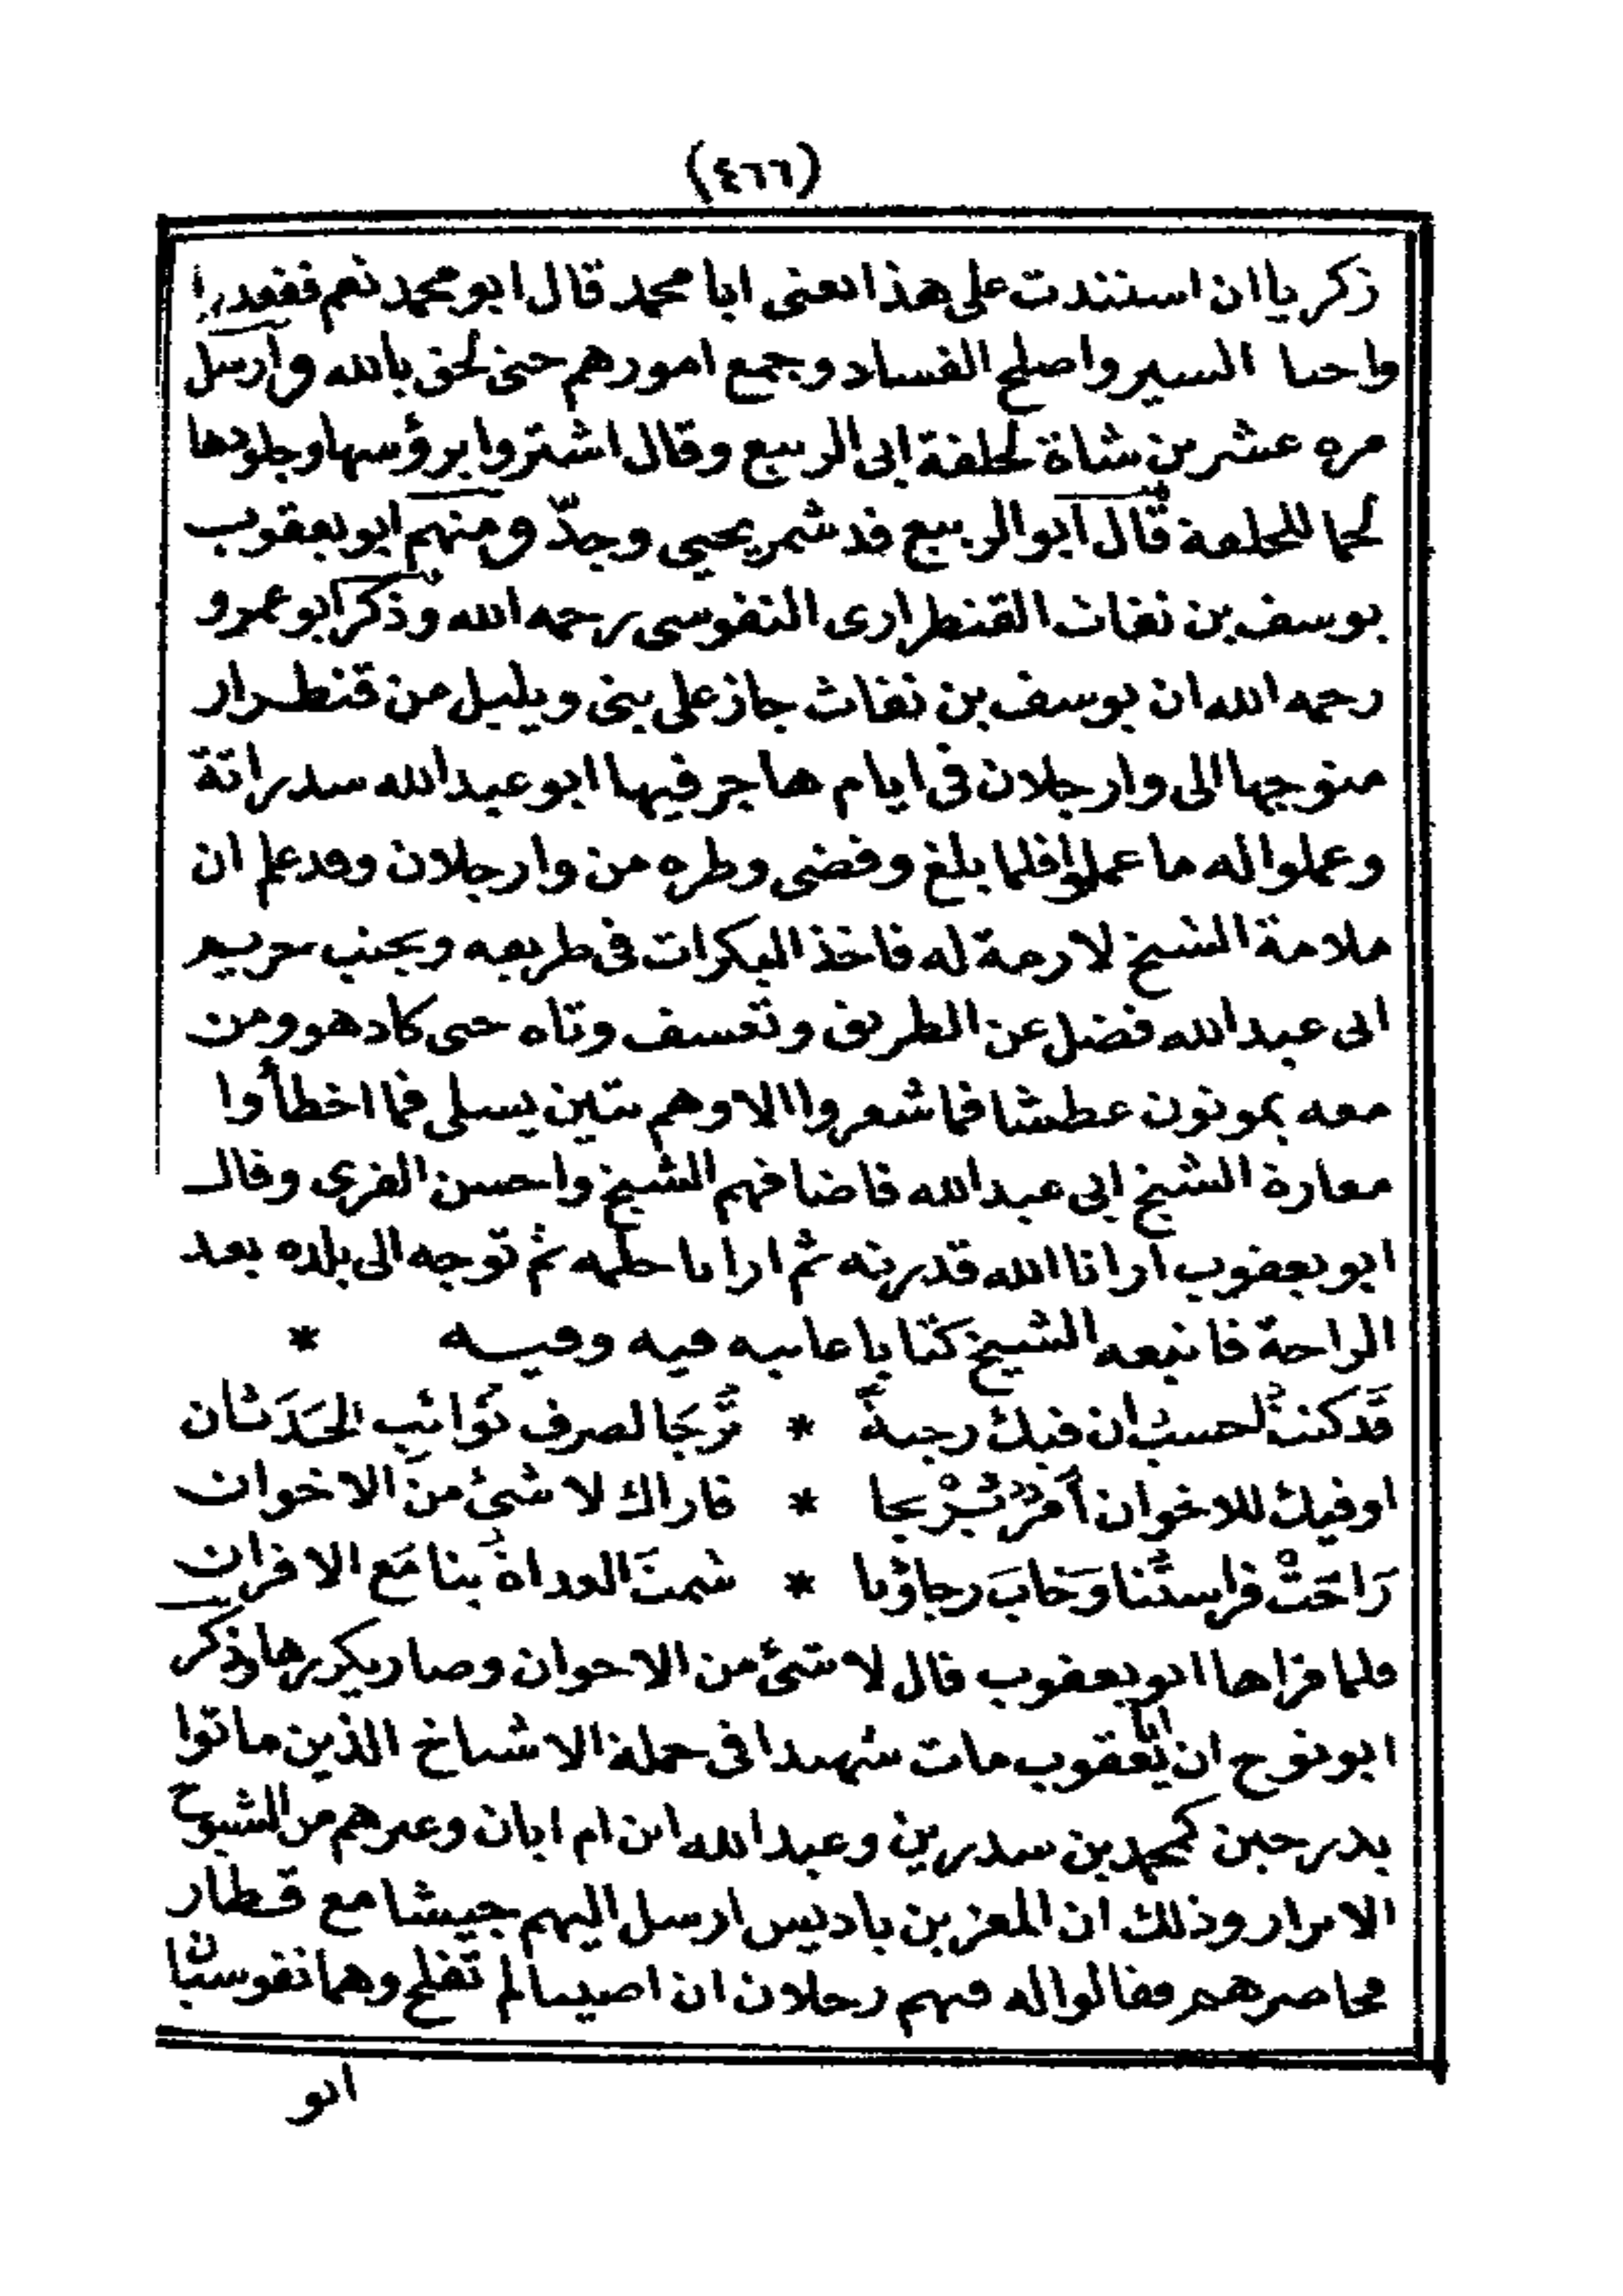 (٤٦٦)
زكريا ان استندت على هذا يعنى ابا محمد قال ابو محمد نعم فقعد
واحيا السير واصلح الفساد وجمع امورهم حتى لحق بالله وارسل
مره عشرين شاة لحلقة ابى الربيع وقال اشتروا برؤسها وجلودها
لحما للحلقة قال ابو الربيع قد شمر يحيى وجدّ ومنهم ابو يعقوب
يوسف بن نفاث القنطرارى النفوسى رحمه الله وذكر ابو عمرو
رحمه الله ان يوسف بن نفاث جاز على بنى ويليل من قنطرار
متوجها الى وارجلان فى ايام هاجر فيها ابو عبد الله سدراتة
وعملوا له ما عملوا فلما بلغ وقضى وطره من وارجلان وقد علم ان
ملامة الشيخ لازمة له فاخذ البكرات فى طريقه ويجنب
ابى عبد الله فضل عن الطريق وتعسف وتاه حتى كاد هو ومن
معه يموتون عطشا فما شعروا الا وهم بتين يسلى فما اخطأوا
مغارة الشيخ ابى عبد الله فاضافهم الشيخ واحسن القرى وقال
ابو يعقوب ارانا الله قدرته ثم ارانا حلمه ثم توجه الى بلاده بعد
الراحة فاتبعه الشيخ كتابا عاتبه فيه وفيه *
قَد كنتُ احسبُ ان فيك رجيةً * تُرجَا لصرف نَوائبِ الحَدَثان
او فيك للاخوان أمرٌ يُرْتجا * فاراك لا شئ من الاخوان
رَاحَتْ فراستُنا وَخابَ رجاؤنا * شمتَ العداةُ بنا مَع الاقران
فلما قراها ابو يعقوب قال لا شئ من الاخوان وصار يكررها وذكر
ابو نوح ان ابا يعقوب مات شهيدا فى جملة الاشياخ الذين ماتوا
بدرجين كمحمد بن سدرين وعبد الله ابن ام ابان وغيرهم من الشيوخ
الابرار وذلك ان المعز بن باديس ارسل اليهم جيشا مع قطار
فحاصرهم فقالوا له فيهم رجلان ان اصيبا لم تفلح وهما نفوسيان
ابو